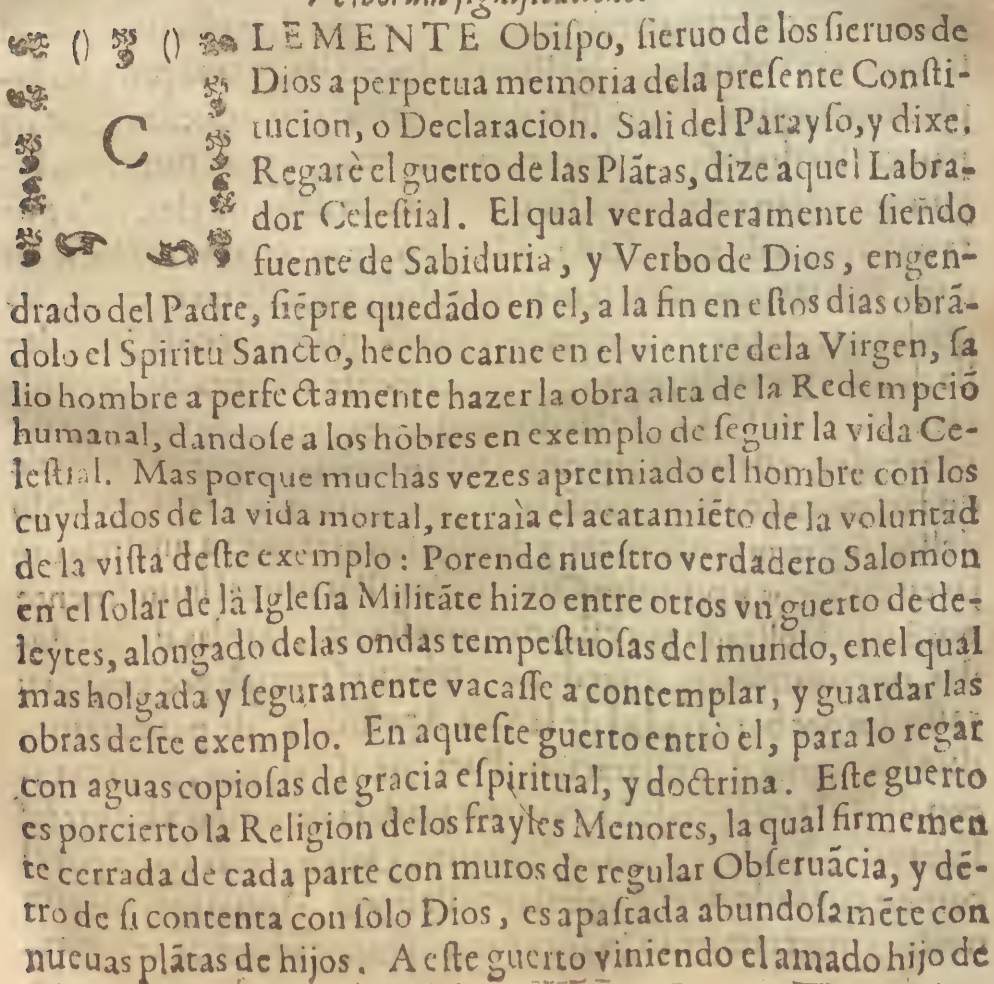 CLEMENTE Obiſpo, ſieruo de los ſieruos de
Dios a perpetua memoria dela preſente Conſti-
tucion, o Declaracion. Sali del Parayſo, y dixe,
Regarè el guerto de las Plãtas, dize aquel Labra-
dor Celeſtial. El qual verdaderamente ſiendo
fuente de Sabiduria, y Verbo de Dios, engen-
drado del Padre, ſiẽpre quedãdo en el, a la fin en eſtos dias obrã-
dolo el Spiritu Sancto, hecho carne en el vientre dela Virgen, ſa
lio hombre a perfectamente hazer la obra alta de la Redempciõ
humanal, dandoſe a los hõbres en exemplo de ſeguir la vida Ce-
leſtial. Mas porque muchas vezes apremiado el hombre con los
cuydados de la vida mortal, retraìa el acatamiẽto de la voluntad
de la viſta deſte exemplo: Porende nueſtro verdadero Salomòn
en el ſolar de la Igleſia Militãte hizo entre otros vn guerto de de-
leytes, alongado delas ondas tempeſtuoſas del mundo, enel qual
mas holgada y ſeguramente vacaſſe a contemplar, y guardar las
obras deſte exemplo. En aqueſte guerto entrò el, para lo regar
con aguas copioſas de gracia eſpiritual, y doctrina. Eſte guerto
es porcierto la Religion delos frayles Menores, la qual firmemen
te cerrada de cada parte con muros de regular Obſeruãcia, y dẽ-
tro de ſi contenta con ſolo Dios, es apaſtada abundoſamẽte con
nueuas plãtas de hijos. A eſte guerto viniendo el amado hijo de